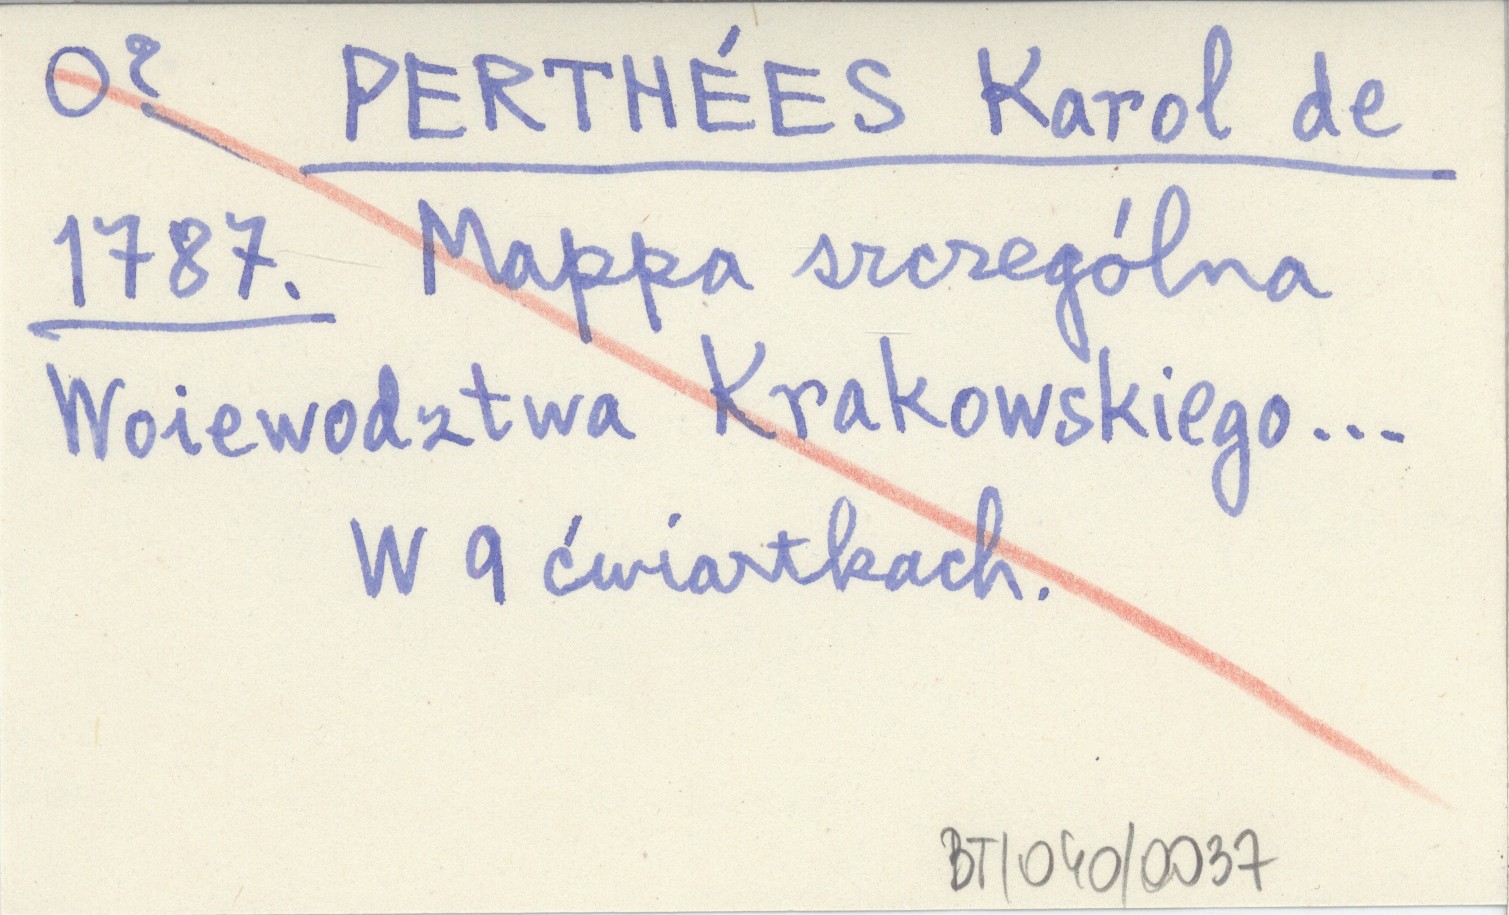 O? PERTHÉES Karol de
1787. Mappa szczególna
Woiewodztwa Krakowskiego...
W 9 ćwiartkach.
BT/040/0037